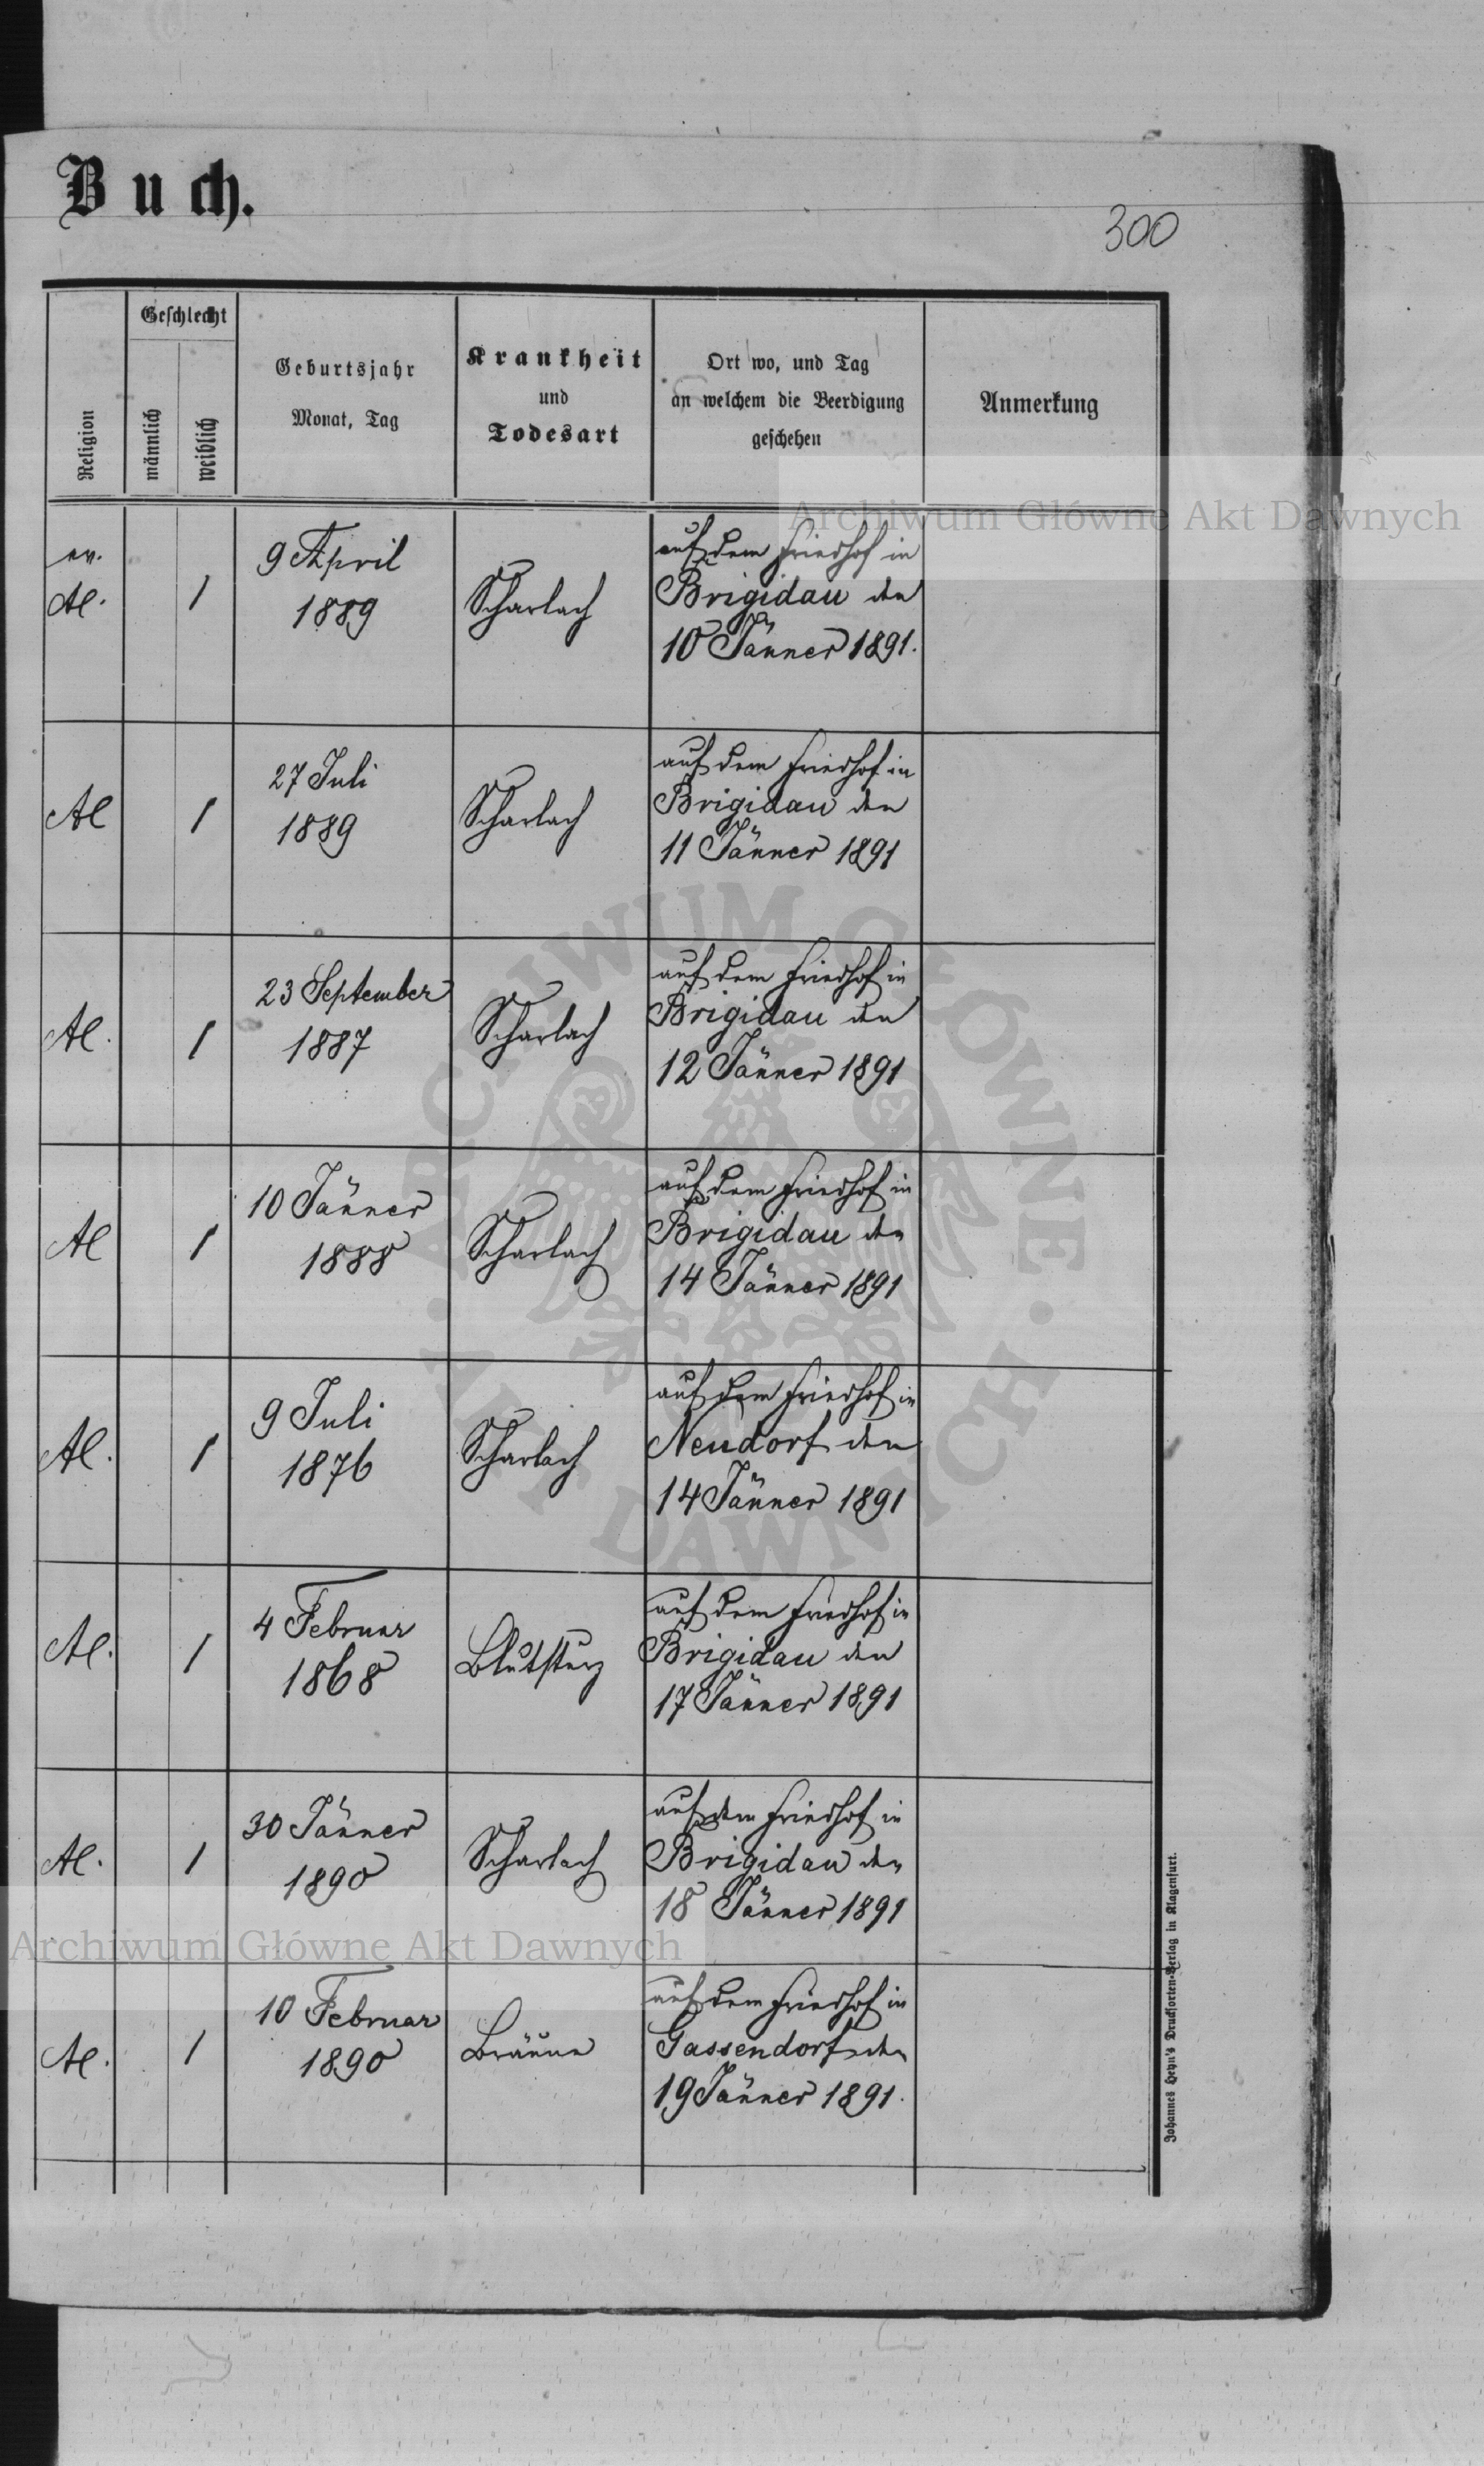 Buch.
300
Religion
Geschlecht
männlich
weiblich
Geburtsjahr
Monat, Tag
Krankheit
und
Todesart
Ort wo, und Tag
an welchem die Beerdigung
geschehen
Anmerkung
ev.
AC.
1
9 April
1889
Scharlach
auf dem Friedhof in
Brigidau den
10 Jänner 1891.
AC
1
27 Juli
1889
Scharlach
auf dem Friedhof in
Brigidau den
11 Jänner 1891
AC.
1
23 September
1887
Scharlach
auf dem Friedhof in
Brigidau den
12 Jänner 1891
AC
1
10 Jänner
1888
Scharlach
auf dem Friedhof in
Brigidau den
14 Jänner 1891
AC.
1
9 Juli
1876
Scharlach
auf dem Friedhof in
Neudorf den
14 Jänner 1891
AC.
1
4 Februar
1868
Blutsturz
auf dem Friedhof in
Brigidau den
17 Jänner 1891
AC.
1
30 Jänner
1890
Scharlach
auf dem Friedhof in
Brigidau den
18 Jänner 1891
AC.
1
10 Februar
1890
Bräune
auf dem Friedhof in
Gassendorf den
19 Jänner 1891.
Johannes Heyn's Drucksorten-Verlag in Klagenfurt.
Archiwum Główne Akt Dawnych
Archiwum Główne Akt Dawnych
ARCHIWUM GŁÓWNE · AKT DAWNYCH ·